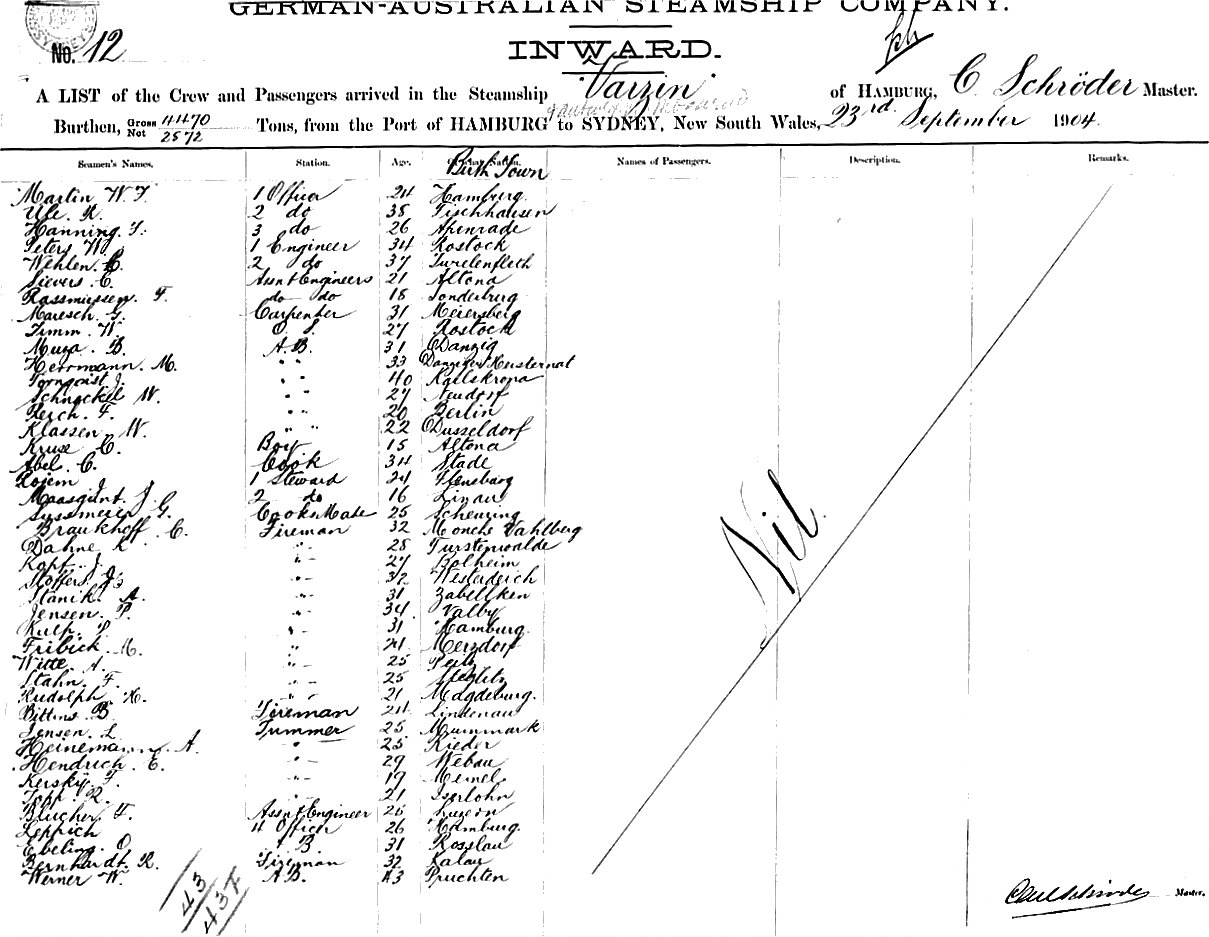 GERMAN-AUSTRALIAN STEAMSHIP COMPANY.
No. 12
INWARD.
A LIST of the Crew and Passengers arrived in the Steamship "Varzin" of HAMBURG, C Schröder Master.
Burthen, Gross 4470 Net 2572 Tons, from the Port of HAMBURG to SYDNEY, New South Wales, 23rd September 1904.
Seamen's Names. Station. Age. Birth Town Names of Passengers. Description. Remarks.
Martin W. F. 1 Officer Hamburg.
Ule. R. 2 do 38 Fischhausen
Hanning. F. 3 do 26 Apenrade
Peters W. 1 Engineer 34 Rostock
Wehlen. C. 2 do 37 Twielenfleth
Sievers C. Assnt Engineers 21 Altona
Rassmussen. F. do do 18 Sonderburg
Maresch. G. Carpenter 31 Meiersberg
Timm. W. O. S. 27 Rostock
Muza. B. A.B. 31 Danzig
Herrmann. M. " " 33 Danziger
Tornqvist J. " " 40 Karlskrona
Schnackel W. " " 27 Neudorf
Reich. F. " " 20 Berlin
Klassen. W. " " 22 Dusseldorf
Kruse C. Boy 15 Altona
Abel. C. Cook 34 Stade
J 1 Steward 24 Flensburg
J. 2 do 16 Linau
Sussmeier G. Cooks Mate 25 Scheuring
Braukhoff. C. Fireman 32 Monche Vahlberg
Dahne K " 28 Furstenwalde
Kopf. J. " 27 Bolheim
Stoffers. J. " 32 Westerdeich
Stanik. A. " 31 Zabellken
Jensen. P. " 34. Valby
Kulp. P. " 31 Hamburg.
Fribick. M. " Merzdorf
Witte. A. " 25 Peitz
Stahn. F. " 25 Steglitz
Rudolph. H. " 21 Magdeburg.
Bittins B. Fireman 24 Lindenau
Jensen. L. Trimmer 25 Mummark
Heinemann. A. " 25 Rieder
Hendrich. E. " 29 Webau
Kersky. F. " 19 Memel
Topp. R. " 21 Iserlohn
Blucher. F. Assnt Engineer 25 Luzern
Leppich 4 Officer 26 Hamburg.
Ebeling. O. A B. 31 Rosslau
Bernhardt. R. Fireman 32 Kalau
Werner W. A.B. 43 Pruchten
Nil.
43
Carl Schröder Master.